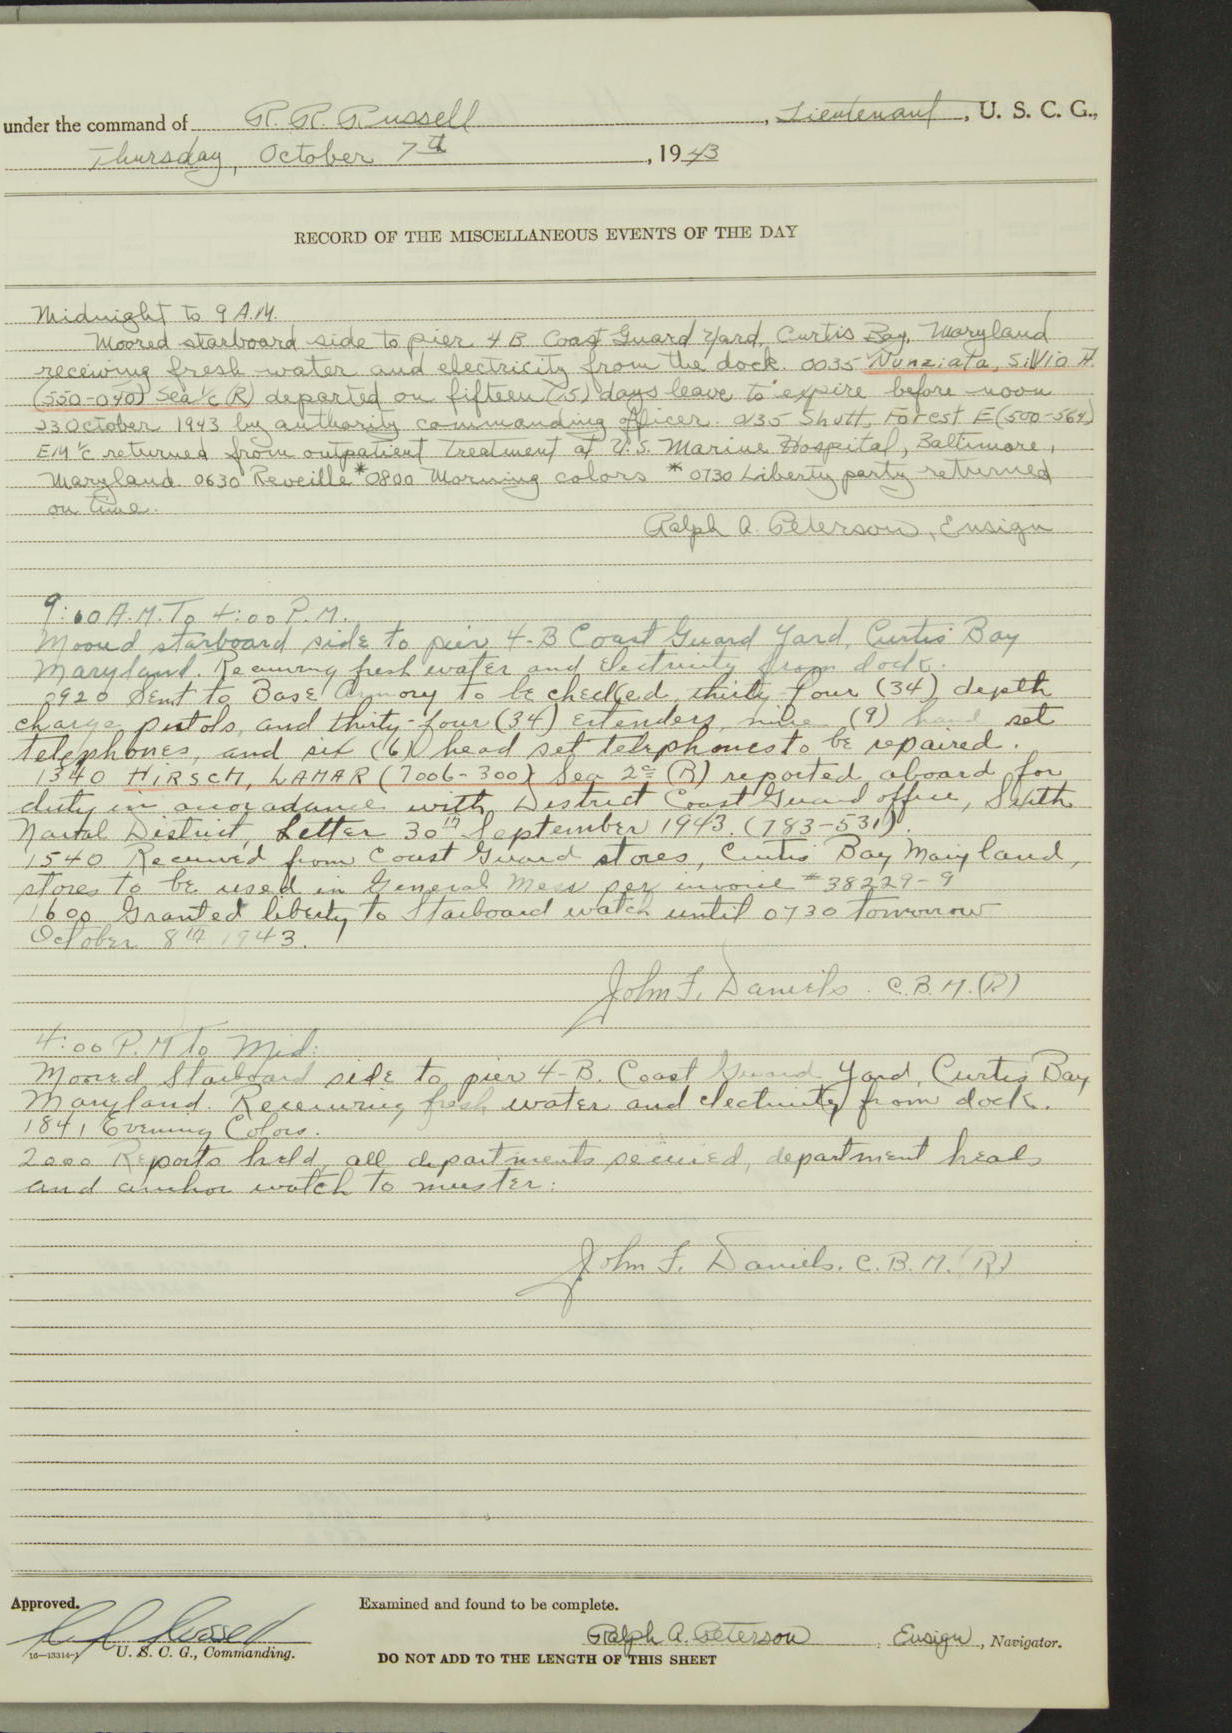 under the command of R. R. Russell, Lieutenant, U. S. C. G.,
Thursday, October 7th, 1943
RECORD OF THE MISCELLANEOUS EVENTS OF THE DAY
Midnight to 9 A.M.
Moored starboard side to pier 4 B Coast Guard Yard, Curtis Bay, Maryland
receiving fresh water and electricity from the dock. 0035 Nunziata, Silvio A.
(550-040) Sea 1/c (R) departed on fifteen (15) days leave to expire before noon
23 October 1943 by authority commanding officer. 0135 Shutt, Forest E (500-564)
EM 1/c returned from outpatient treatment at U.S. Marine Hospital, Baltimore,
Maryland. 0630 Reveille * 0800 Morning colors * 0730 Liberty party returned
on time.
Ralph A. Peterson, Ensign
9:00 A.M. To 4:00 P.M.
Moored starboard side to pier 4-B Coast Guard Yard, Curtis Bay
Maryland. Receiving fresh water and electricity from dock.
0920 Sent to Base Armory to be checked thirty-four (34) depth
charge pistols, and thirty-four (34) extenders, nine (9) hand set
telephones, and six (6) head set telephones to be repaired.
1340 HIRSCH, LAMAR (7006-300) Sea 2c (R) reported aboard for
duty in accordance with District Coast Guard office, Sixth
Naval District, Letter 30th September 1943. (783-531).
1540 Received from Coast Guard stores, Curtis Bay Maryland,
stores to be used in General Mess per invoice #38229-9
1600 Granted liberty to Starboard watch until 0730 tomorrow
October 8th 1943.
John F. Daniels. C.B.M.(R)
4:00 P.M To Mid:
Moored Starboard side to pier 4-B. Coast Guard Yard, Curtis Bay
Maryland. Receiving fresh water and electricity from dock.
1841 Evening Colors.
2000 Reports held, all departments secured, department heads
and anchor watch to muster.
John F. Daniels. C.B.M. (R)
Approved. Examined and found to be complete.
R R Russell Ralph A. Peterson, Ensign, Navigator.
16—13314-1 U. S. C. G., Commanding.
DO NOT ADD TO THE LENGTH OF THIS SHEET